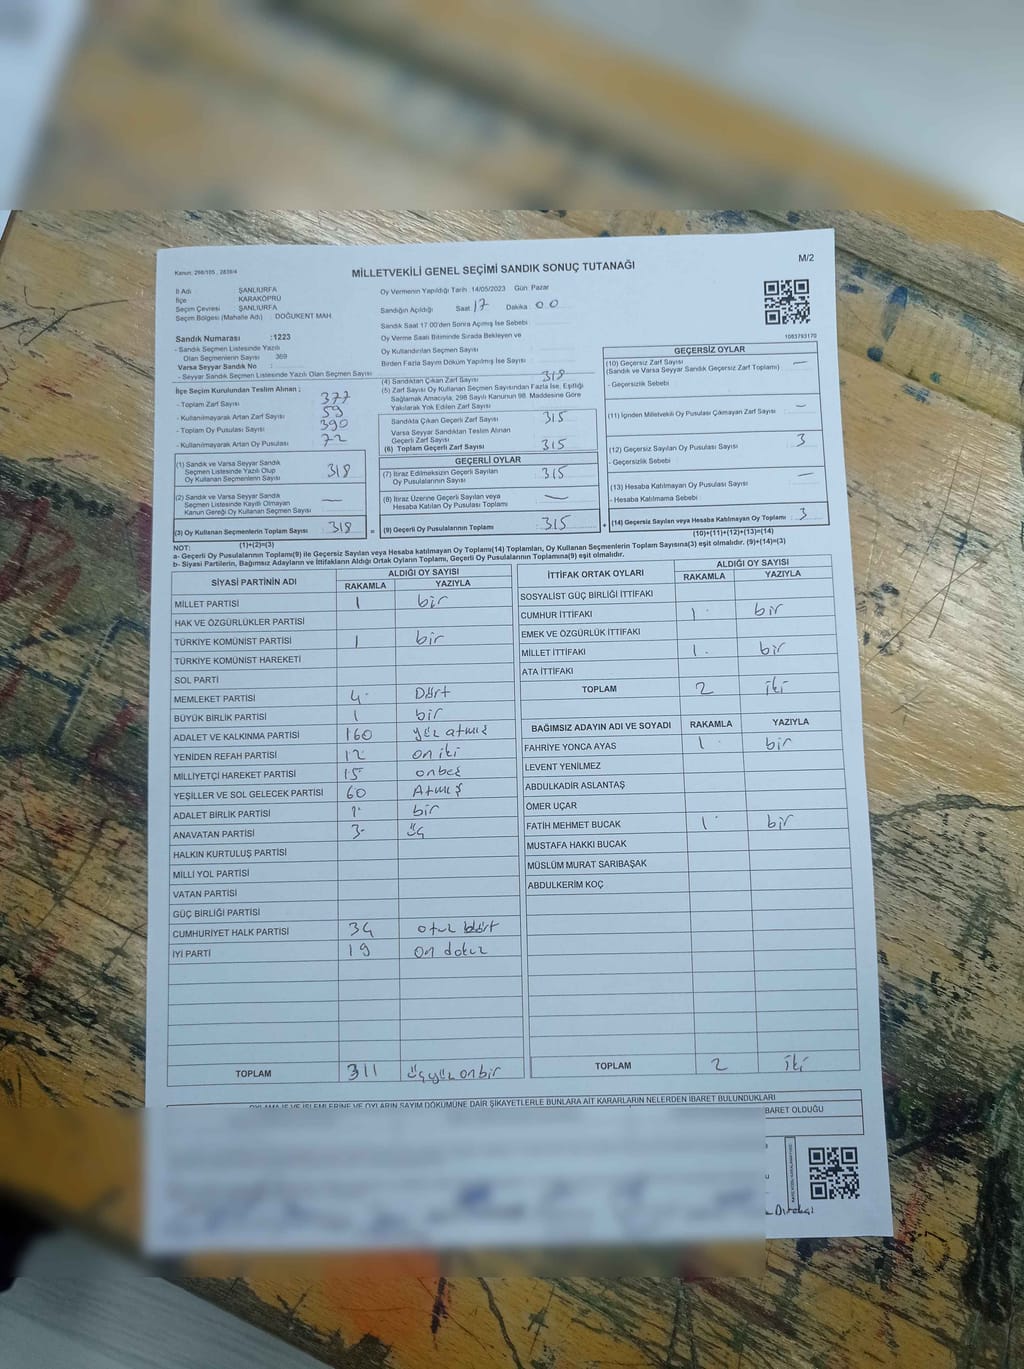 M/2
Kanun: 298/105, 2839/4
MİLLETVEKİLİ GENEL SEÇİMİ SANDIK SONUÇ TUTANAĞI
İl Adı ŞANLIURFA
İlçe KARAKÖPRÜ
Seçim Çevresi ŞANLIURFA
Seçim Bölgesi (Mahalle Adı) DOĞUKENT MAH.
Oy Vermenin Yapıldığı Tarih 14/05/2023 Gün: Pazar
Sandığın Açıldığı Saat 17 Dakika 00
Sandık Saat 17:00'den Sonra Açımış İse Sebebi
Oy Verme Saati Bitiminde Sırada Bekleyen ve
Oy Kullandırılan Seçmen Sayısı
Birden Fazla Sayım Döküm Yapılmış İse Sayısı
1083793170
Sandık Numarası :1223
- Sandık Seçmen Listesinde Yazılı
Olan Seçmenlerin Sayısı 369
Varsa Seyyar Sandık No :
- Seyyar Sandık Seçmen Listesinde Yazılı Olan Seçmen Sayısı
İlçe Seçim Kurulundan Teslim Alınan ;
- Toplam Zarf Sayısı 377
- Kullanılmayarak Artan Zarf Sayısı 59
- Toplam Oy Pusulası Sayısı 390
- Kullanılmayarak Artan Oy Pusulası 72
(1) Sandık ve Varsa Seyyar Sandık
Seçmen Listesinde Yazılı Olup
Oy Kullanan Seçmenlerin Sayısı 318
(2) Sandık ve Varsa Seyyar Sandık
Seçmen Listesinde Kayıtlı Olmayan
Kanun Gereği Oy Kullanan Seçmen Sayısı —
(3) Oy Kullanan Seçmenlerin Toplam Sayısı : 318
(1)+(2)=(3)
(4) Sandıktan Çıkan Zarf Sayısı 318
(5) Zarf Sayısı Oy Kullanan Seçmen Sayısından Fazla İse, Eşitliği
Sağlamak Amacıyla, 298 Sayılı Kanunun 98. Maddesine Göre
Yakılarak Yok Edilen Zarf Sayısı
Sandıkta Çıkan Geçerli Zarf Sayısı 315
Varsa Seyyar Sandıktan Teslim Alınan
Geçerli Zarf Sayısı
(6) Toplam Geçerli Zarf Sayısı 315
GEÇERLİ OYLAR
(7) İtiraz Edilmeksizin Geçerli Sayılan
Oy Pusulalarının Sayısı 315
(8) İtiraz Üzerine Geçerli Sayılan veya
Hesaba Katılan Oy Pusulası Toplamı —
= (9) Geçerli Oy Pusulalarının Toplamı 315
GEÇERSİZ OYLAR
(10) Geçersiz Zarf Sayısı —
(Sandık ve Varsa Seyyar Sandık Geçersiz Zarf Toplamı)
- Geçersizlik Sebebi
(11) İçinden Milletvekili Oy Pusulası Çıkmayan Zarf Sayısı —
(12) Geçersiz Sayılan Oy Pusulası Sayısı 3
- Geçersizlik Sebebi
(13) Hesaba Katılmayan Oy Pusulası Sayısı —
- Hesaba Katılmama Sebebi
+ (14) Geçersiz Sayılan veya Hesaba Katılmayan Oy Toplamı : 3
(10)+(11)+(12)+(13)=(14)
NOT:
a- Geçerli Oy Pusulalarının Toplamı(9) ile Geçersiz Sayılan veya Hesaba katılmayan Oy Toplamı(14) Toplamları, Oy Kullanan Seçmenlerin Toplam Sayısına(3) eşit olmalıdır. (9)+(14)=(3)
b- Siyasi Partilerin, Bağımsız Adayların ve İttifakların Aldığı Ortak Oyların Toplamı, Geçerli Oy Pusulalarının Toplamına(9) eşit olmalıdır.
SİYASİ PARTİNİN ADI ALDIĞI OY SAYISI
RAKAMLA YAZIYLA
MİLLET PARTİSİ 1 bir
HAK VE ÖZGÜRLÜKLER PARTİSİ
TÜRKİYE KOMÜNİST PARTİSİ 1 bir
TÜRKİYE KOMÜNİST HAREKETİ
SOL PARTİ
MEMLEKET PARTİSİ 4 Dört
BÜYÜK BİRLİK PARTİSİ 1 bir
ADALET VE KALKINMA PARTİSİ 160 yüz atmış
YENİDEN REFAH PARTİSİ 12 on iki
MİLLİYETÇİ HAREKET PARTİSİ 15 onbeş
YEŞİLLER VE SOL GELECEK PARTİSİ 60 Atmış
ADALET BİRLİK PARTİSİ 1 bir
ANAVATAN PARTİSİ 3 üç
HALKIN KURTULUŞ PARTİSİ
MİLLİ YOL PARTİSİ
VATAN PARTİSİ
GÜÇ BİRLİĞİ PARTİSİ
CUMHURİYET HALK PARTİSİ 34 otuz dört
İYİ PARTİ 19 on dokuz
TOPLAM 311 üçyüz onbir
İTTİFAK ORTAK OYLARI ALDIĞI OY SAYISI
RAKAMLA YAZIYLA
SOSYALİST GÜÇ BİRLİĞİ İTTİFAKI
CUMHUR İTTİFAKI 1 bir
EMEK VE ÖZGÜRLÜK İTTİFAKI
MİLLET İTTİFAKI 1 bir
ATA İTTİFAKI
TOPLAM 2 iki
BAĞIMSIZ ADAYIN ADI VE SOYADI RAKAMLA YAZIYLA
FAHRİYE YONCA AYAS 1 bir
LEVENT YENİLMEZ
ABDULKADİR ASLANTAŞ
ÖMER UÇAR
FATİH MEHMET BUCAK 1 bir
MUSTAFA HAKKI BUCAK
MÜSLÜM MURAT SARIBAŞAK
ABDULKERİM KOÇ
TOPLAM 2 iki
OYLAMA İŞ VE İŞLEMLERİNE VE OYLARIN SAYIM DÖKÜMÜNE DAİR ŞİKAYETLERLE BUNLARA AİT KARARLARIN NELERDEN İBARET BULUNDUKLARI
BARET OLDUĞU